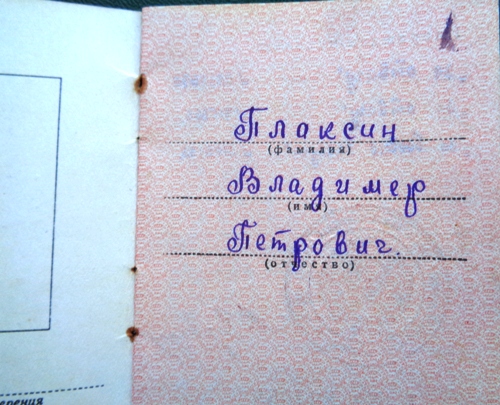 Плаксин
(фамилия)
Владимер
(имя)
Петрович.
(отчество)
ерения